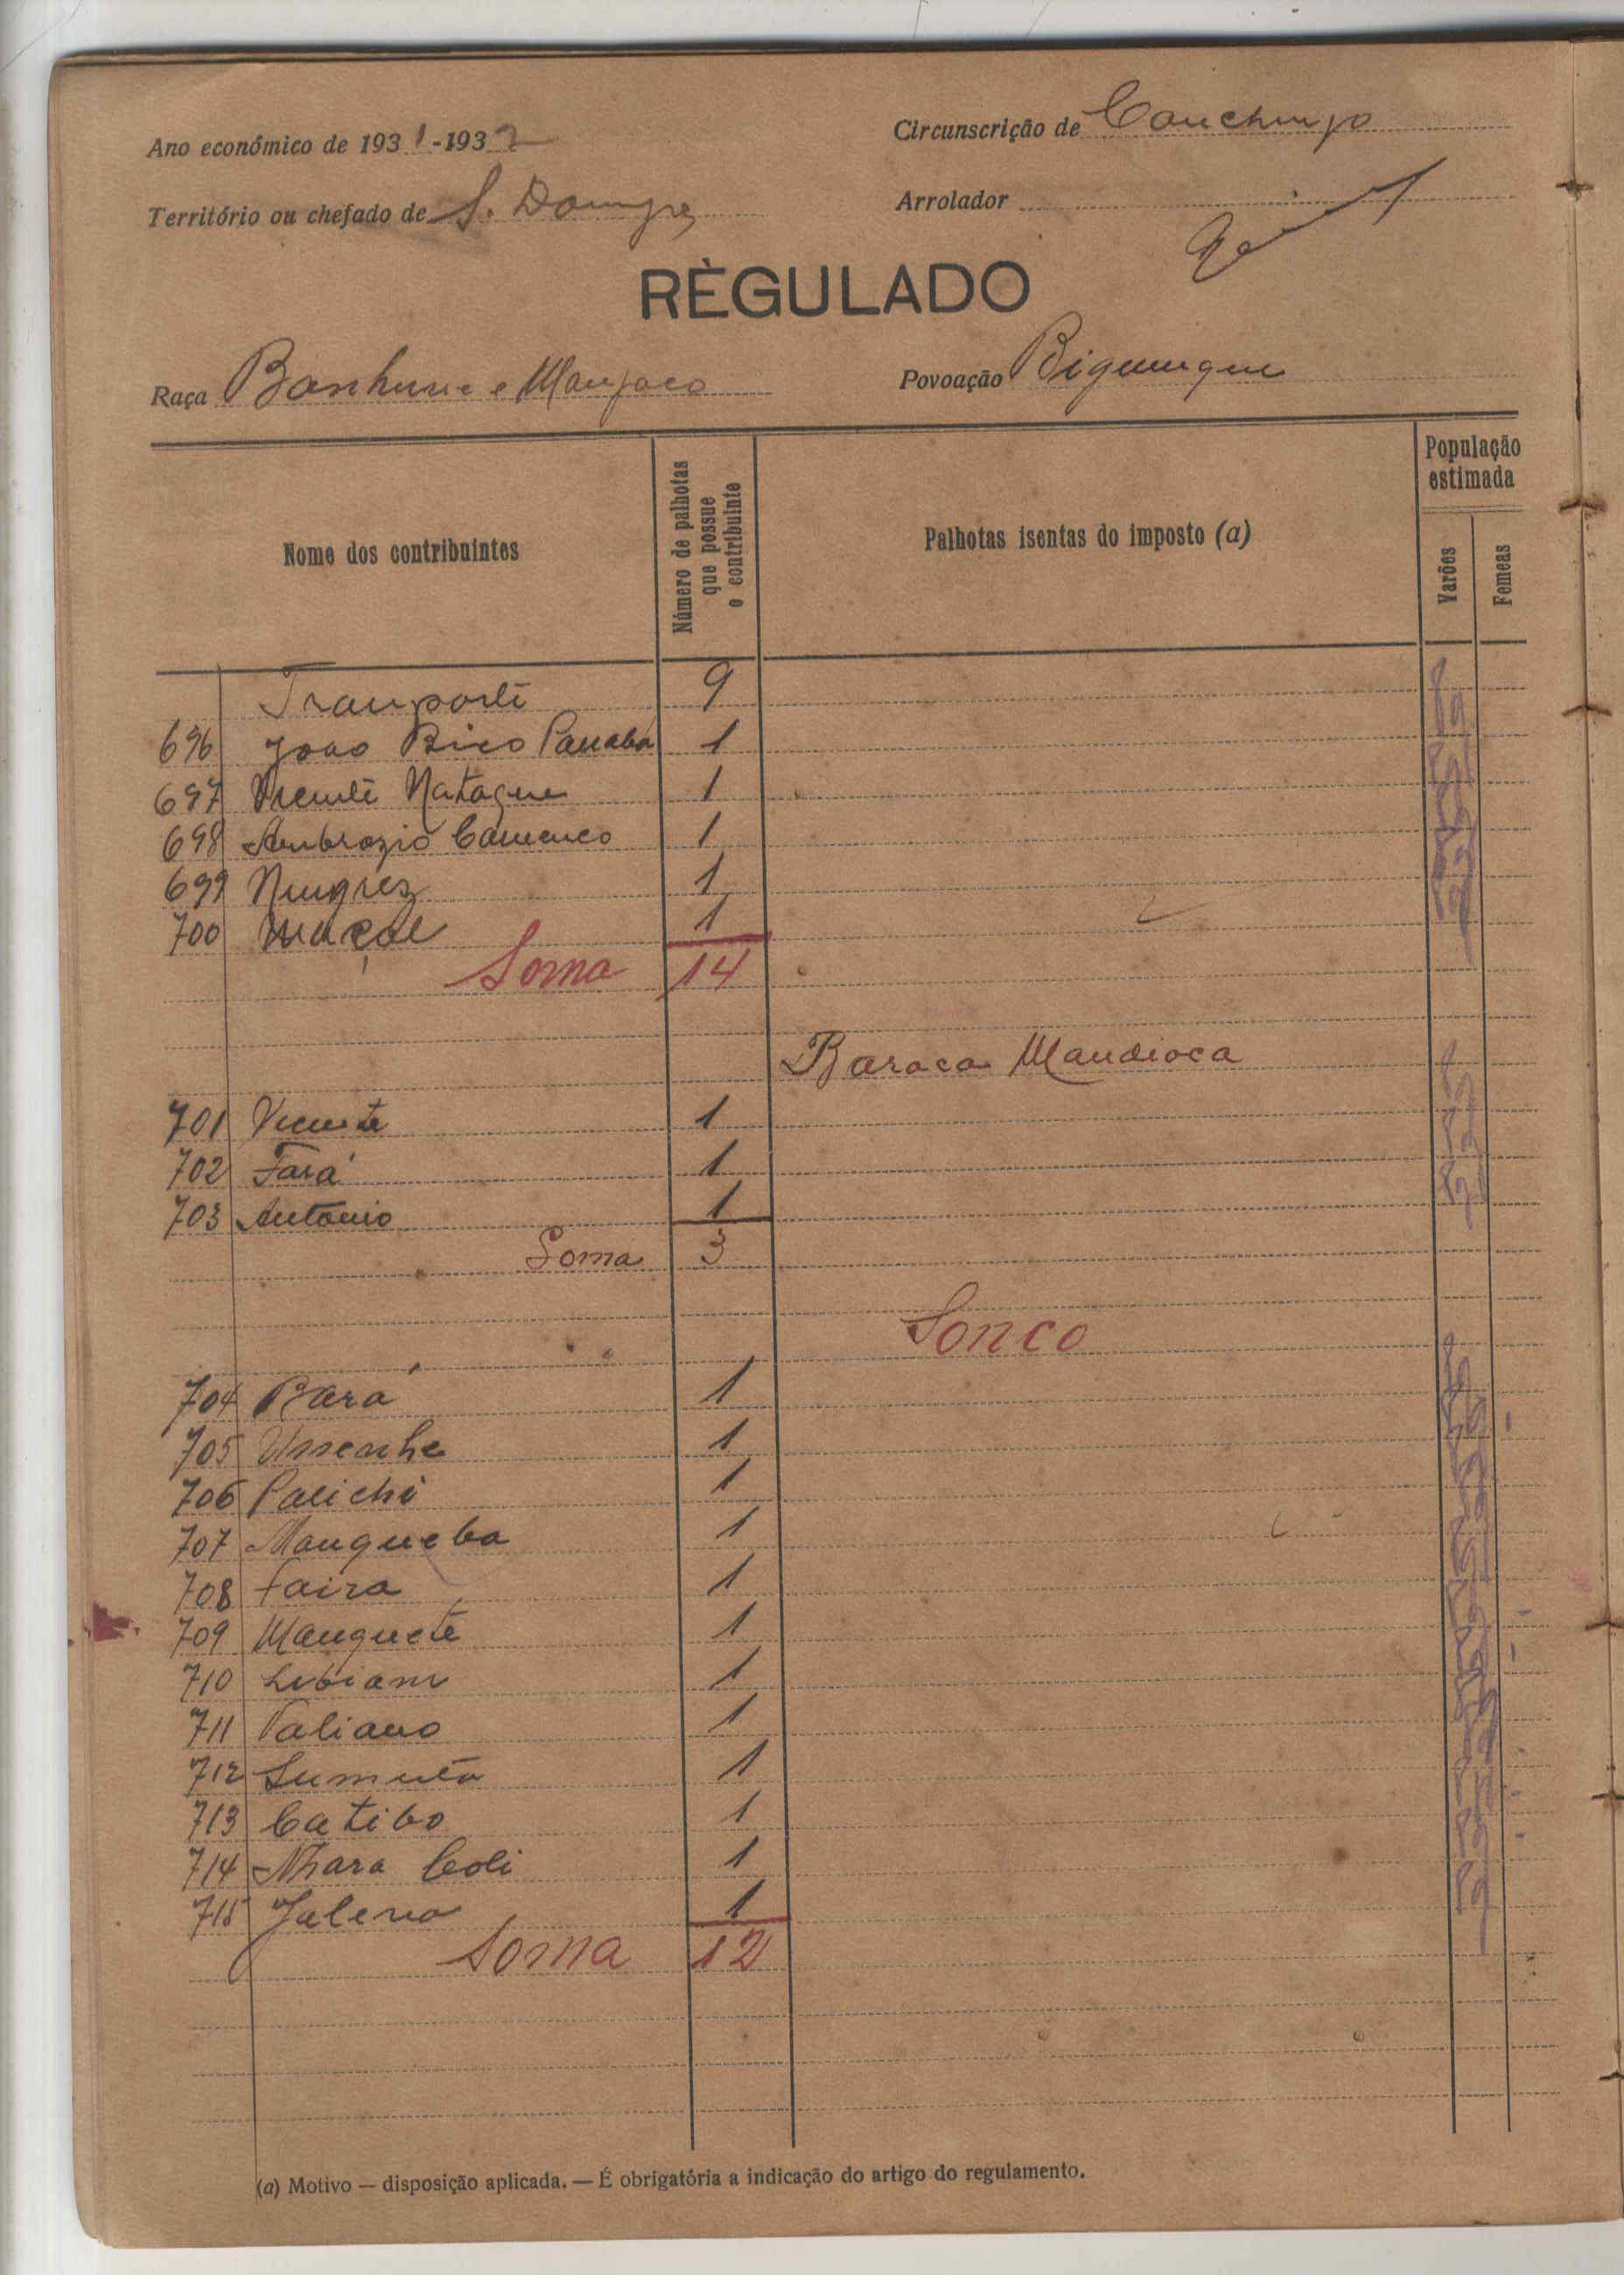 Ano económico de 1931-1932
Circunscrição de Canchungo
Território ou chefado de S. Domingos
Arrolador
RÈGULADO
Raça Banhune e Manjaco
Povoação Biguingue
Nome dos contribuintes
Número de palhotas que possue o contribuinte
Palhotas isentas do imposto (a)
População estimada
Varões
Femeas
Transporte 9
696 João Bico 1
697 Vicente Natague 1
698 Ambrozio 1
699 1
700 1
Soma 14
Baraca Mandioca
701 Vicente 1
702 Fará 1
703 António 1
Soma 3
Sonco
704 Bara 1
705 Ussenhe 1
706 Palichi 1
707 Mangueba 1
708 Faira 1
709 Manguete 1
710 1
711 Valiano 1
712 1
713 Catibo 1
714 Nhara Coli 1
715 Jaleno 1
Soma 12
(a) Motivo — disposição aplicada. — É obrigatória a indicação do artigo do regulamento.